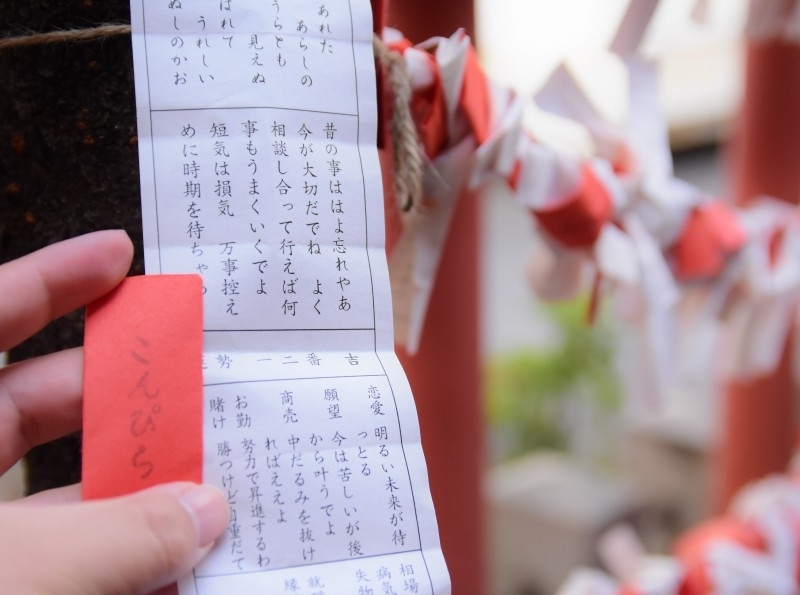 あれた
あらしの
うらとも
見えぬ
はれて
うれしい
ぬしのかお
昔の事ははよ忘れやあ
今が大切だでね　よく
相談し合って行えば何
事もうまくいくでよ
短気は損気　万事控え
めに時期を待ちゃ
吉　番　二　一　勢
恋愛　明るい未来が待
っとる
願望　今は苦しいが後
から叶うでよ
商売　中だるみを抜け
ればええよ
お勤　努力で昇進するわ
賭け　勝つけど自重だて
相場
病気
失物
縁
こんぴら